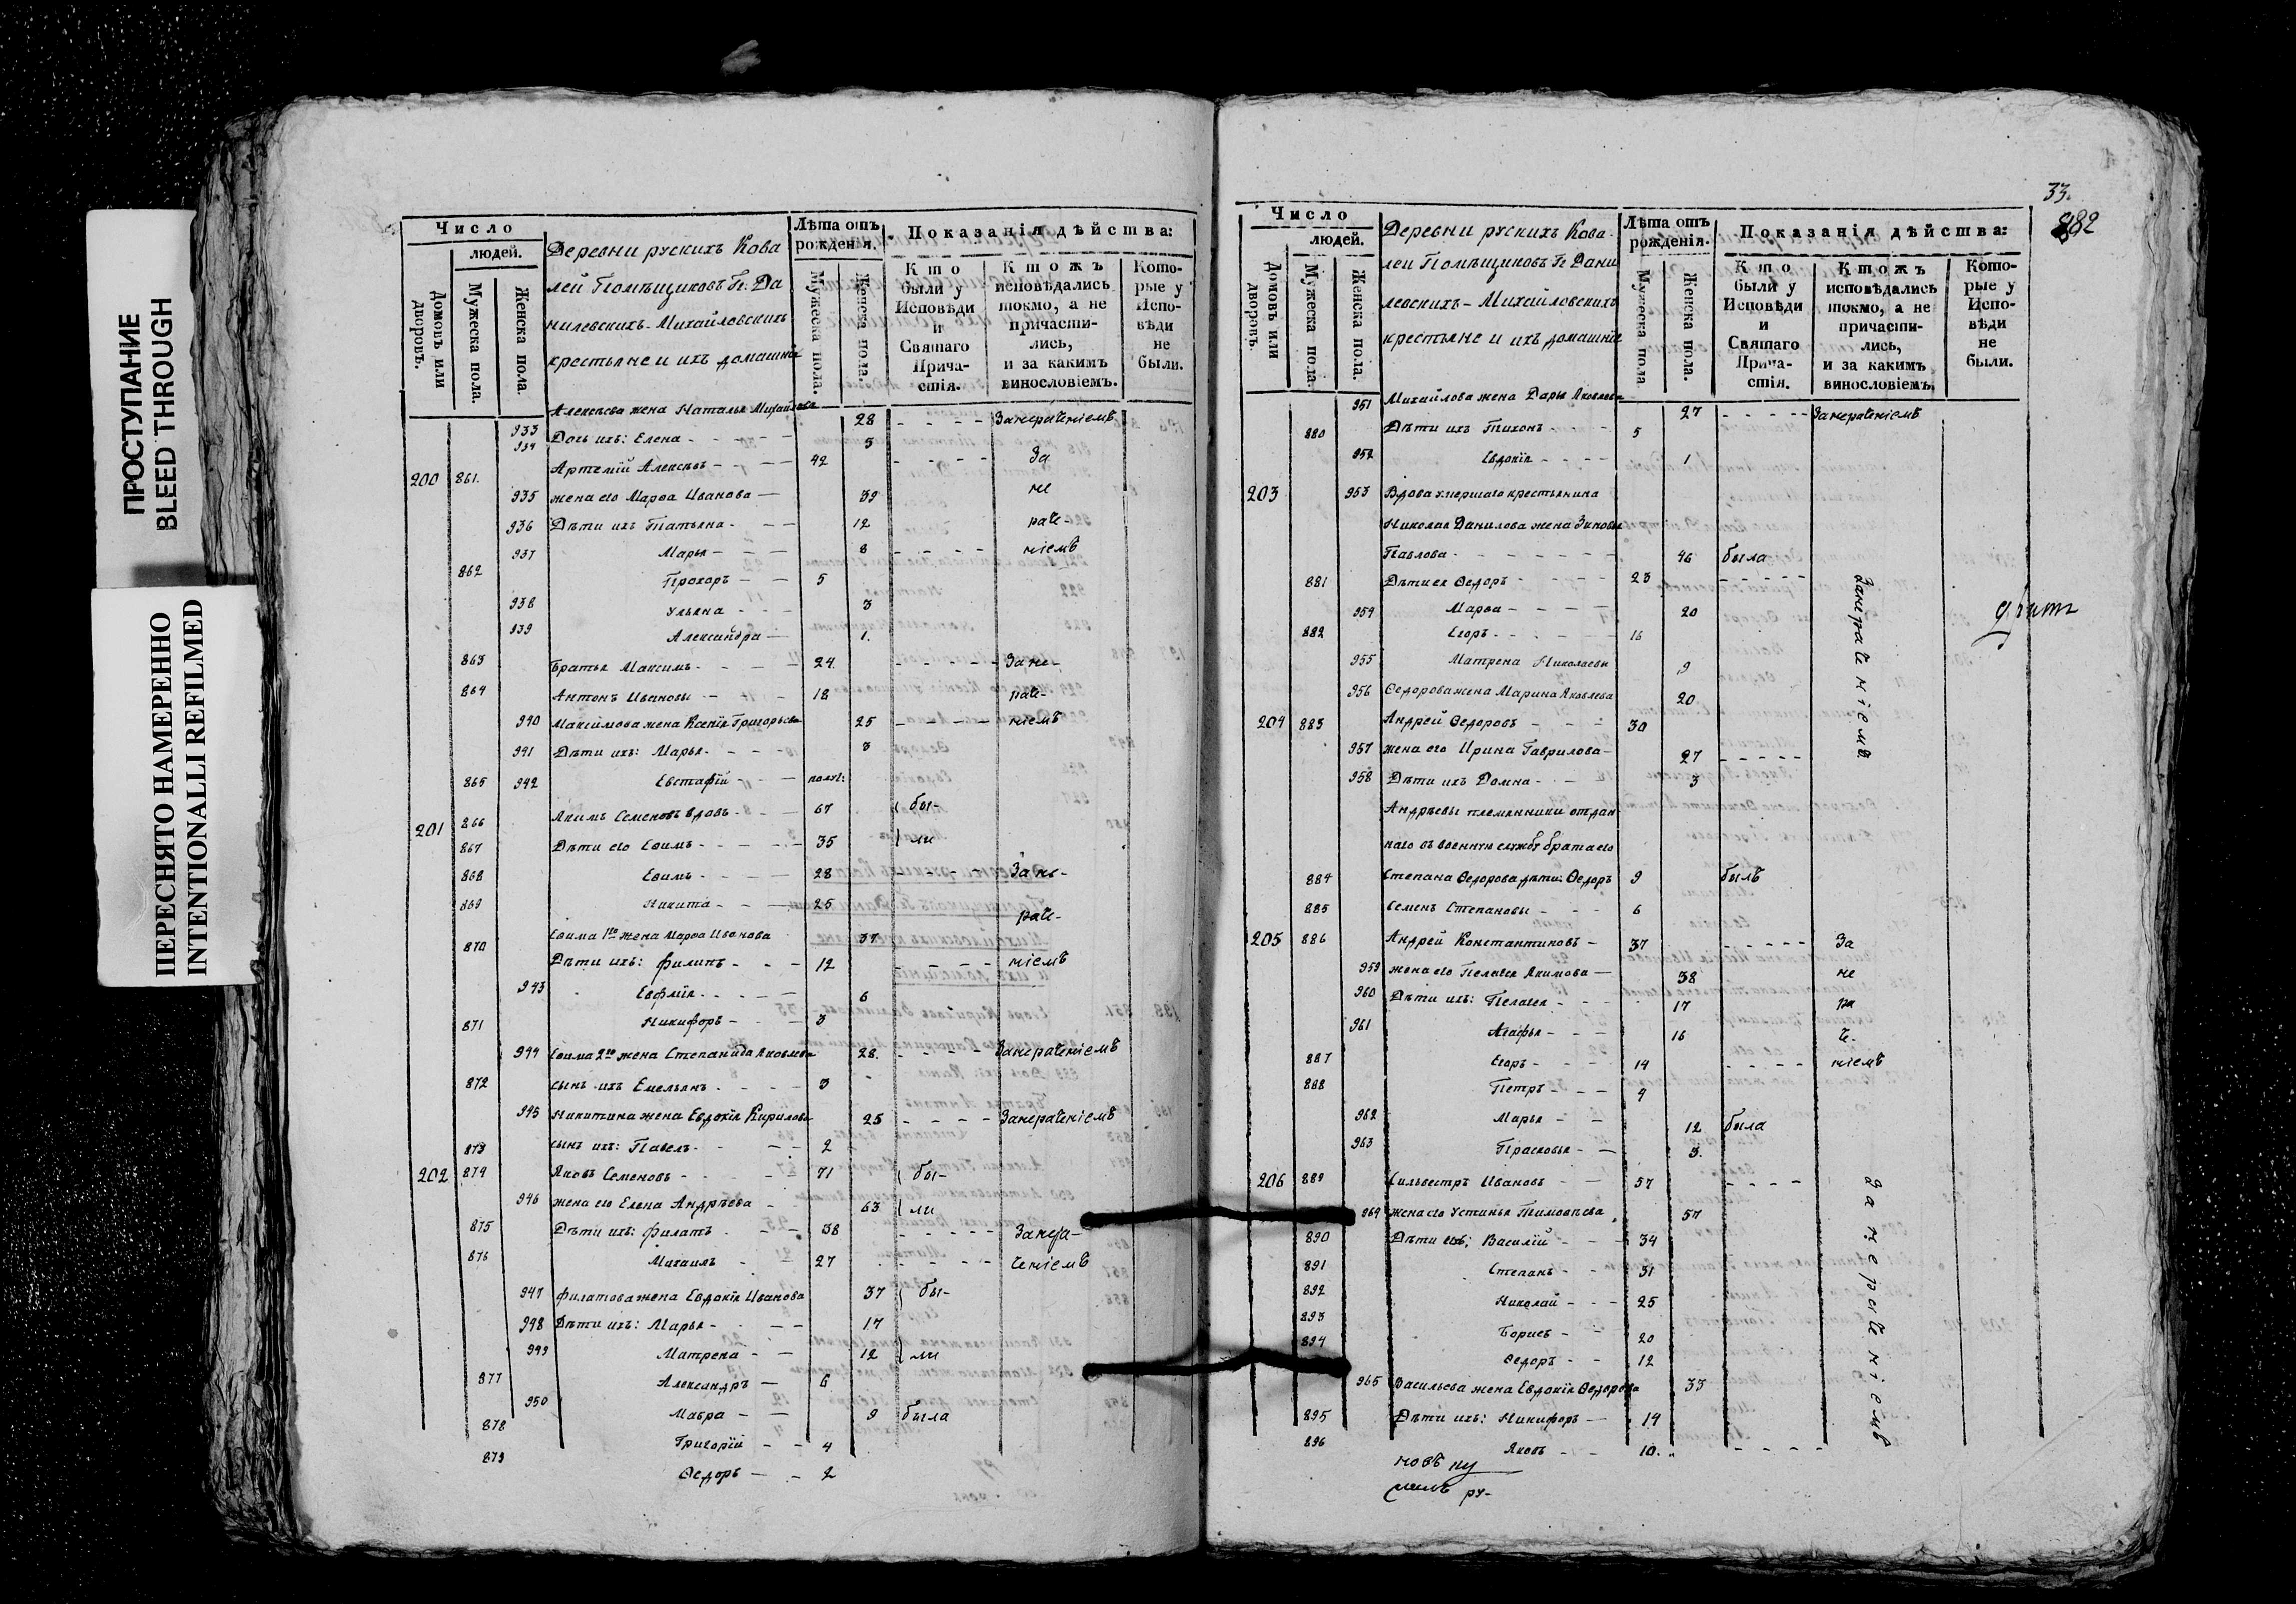 ПРОСТУПАНИЕ
BLEED THROUGH
ПЕРЕСНЯТО НАМЕРЕННО
INTENTIONALLI REFILMED
Число
людей.
Домовъ или дворовъ.
Мужеска пола.
Женска пола.
Деревни рускихъ Кова
лей Помѣщиковъ Гг. Да
нилевскихъ-Михайловскихъ
крестьяне и ихъ домашніе
Лѣта отъ рожденія.
Мужеска пола.
Женска пола.
Показанія дѣйства:
Кто были у Исповѣди и Святаго Причастія.
Ктожъ исповѣдались токмо, а не причастились, и за какимъ винословіемъ.
Которые у Исповѣди не были.
933 Алексѣева жена Наталья Михайлова 28 Занераченіемъ
934 Дочь ихъ: Елена 5
200 861. Артемій Алексѣевъ 42 За
935 жена его Марѳа Иванова 39 не
936 Дѣти ихъ Татьяна 12 раче-
937 Марья 8 ніемъ
862 Прохоръ 5
938 Ульяна 3
939 Александра 1.
863 Братья Максимъ 24. Зане-
864 Антонъ Ивановы 18 раче-
940 Максимова жена Ксенія Григорьева 25 ніемъ
941 Дѣти ихъ: Марья 3
865 942 Евстафій полг:
201 866 Якимъ Семеновъ вдовъ 67 бы-
867 Дѣти его Еѳимъ 35 ли
868 Еѳимъ 28 Зане-
869 Никита 25 раче-
870 Еѳима 1го жена Марѳа Иванова 37
Дѣти ихъ: Филипъ 12 ніемъ
943 Евфмія 6
871 Никифоръ 3
944 Еѳима 2го жена Степанида Яковлева 28. Занераченіемъ
872 сынъ ихъ Емельянъ 3
945 Никитина жена Евдокія Кирилова 25 Занераченіемъ
873 сынъ ихъ: Павелъ 2
202 874 Яковъ Семеновъ 71 бы-
946 жена его Елена Андрѣева 63 ли
875 Дѣти ихъ: Филатъ 38 Занера-
876 Михаилъ 27 ченіемъ
947 Филатова жена Евдокія Иванова 37 бы-
948 Дѣти ихъ: Марья 17
949 Матрена 12 ли
877 Александръ 6
950 Мавра 9 была
878 Григорій 4
879 Ѳедоръ 2
33.
882
Число
людей.
Домовъ или дворовъ.
Мужеска пола.
Женска пола.
Деревни рускихъ Кова-
лей Помѣщиковъ Гг Дани
левскихъ-Михайловскихъ
крестьяне и ихъ домашніе
Лѣта отъ рожденія.
Мужеска пола.
Женска пола.
Показанія дѣйства:
Кто были у Исповѣди и Святаго Причастія.
Ктожъ исповѣдались токмо, а не причастились, и за какимъ винословіемъ.
Которые у Исповѣди не были.
951 Михайлова жена Дарья Яковлева 27 Занераченіемъ
880 Дѣти ихъ Тихонъ 5
952 Евдокія 1
203 953 Вдова умершаго крестьянина
Николая Данилова жена Зиновья
Павлова 46 была
881 Дѣти ея Ѳедоръ 23
954 Марѳа 20
882 Егоръ 16
955 Матрена Николаевы 9
956 Ѳедорова жена Марина Яковлева 20
Занераченіемъ
204 883 Андрей Ѳедоровъ 30
957 жена его Ирина Гаврилова 27
958 Дѣти ихъ Домна 3
Андрѣевы племянники отдан
наго въ военную службу брата его
884 Степана Ѳедорова дѣти: Ѳедоръ 9 былъ
885 Семенъ Степановы 6
205 886 Андрей Константиновъ 37 За
959 жена его Пелагея Якимова 38 не
960 Дѣти ихъ: Пелагея 17 ра
961 Агафья 16 че-
887 Егоръ 14 ніемъ
888 Петръ 4
962 Марья 12 была
963 Прасковья 3.
206 889 Сильвестръ Ивановъ 57
964 жена его Устинья Тимоѳѣева 57
890 Дѣти ихъ: Василій 34
891 Степанъ 31
892 Николай 25
893 Борисъ 20
894 Ѳедоръ 12
965 Васильева жена Евдокія Ѳедорова 33
895 Дѣти ихъ: Никифоръ 14
896 Яковъ 10.
Занераченіемъ